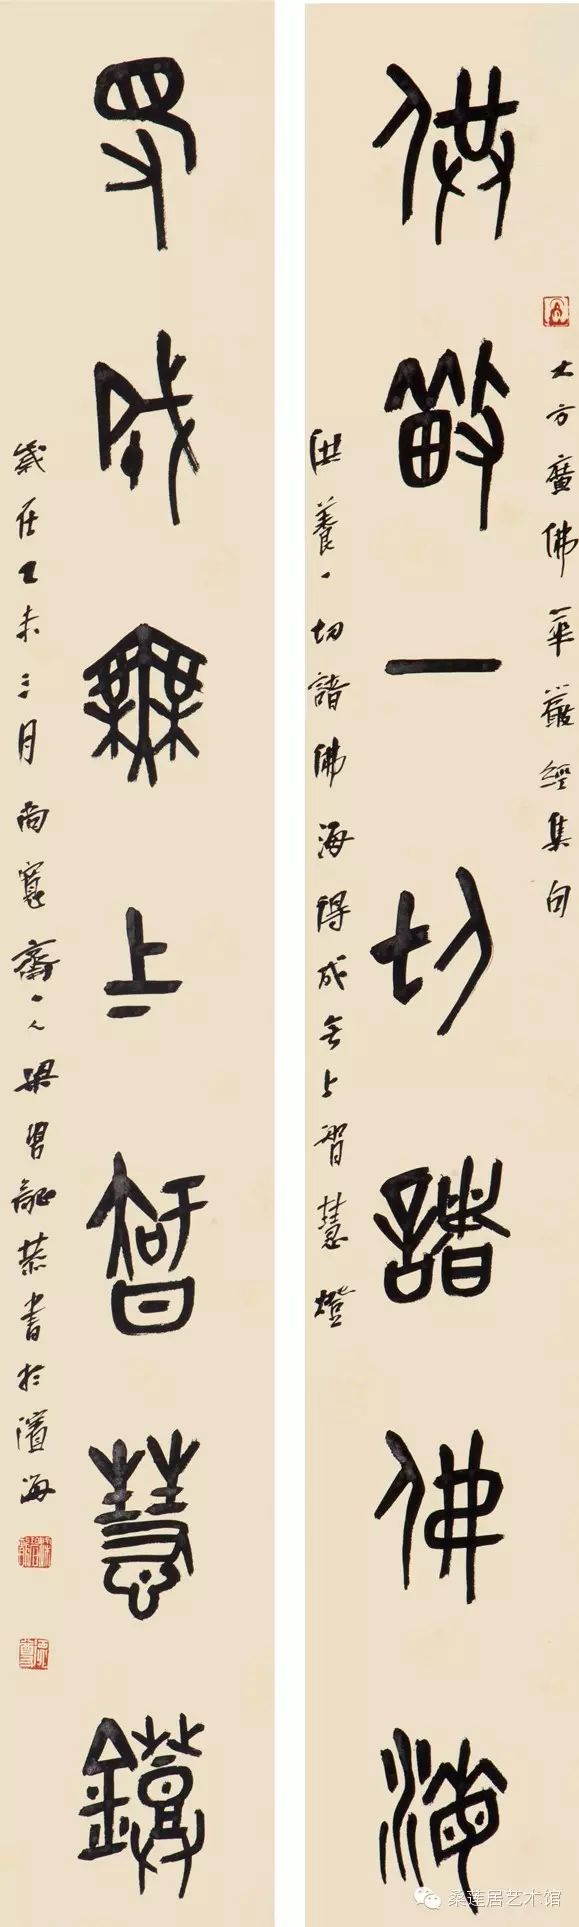 大方廣佛華嚴經集句
供養一切諸佛海
供養一切諸佛海得成无上智慧燈
得成無上智慧鐙
歲在乙未三月尚寬齋主人梁恭書於濱海
桑莲居艺术馆